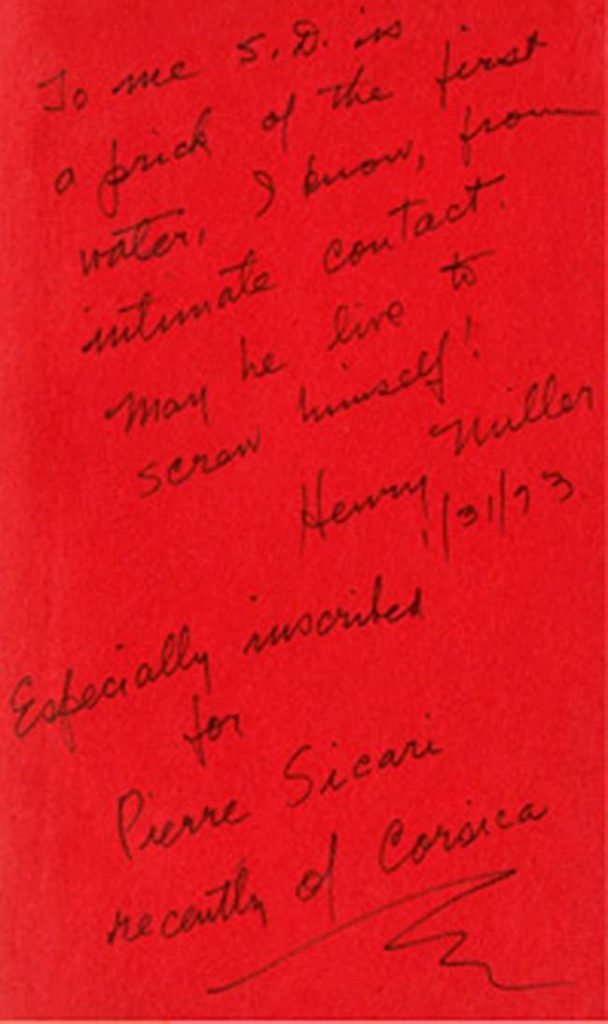 To me S.D. is
a prick of the first
water, I know, from
intimate contact.
May he live to
screw himself!
Henry Miller
1/31/73
Especially inscribed
for
Pierre Sicari
recently of Corsica